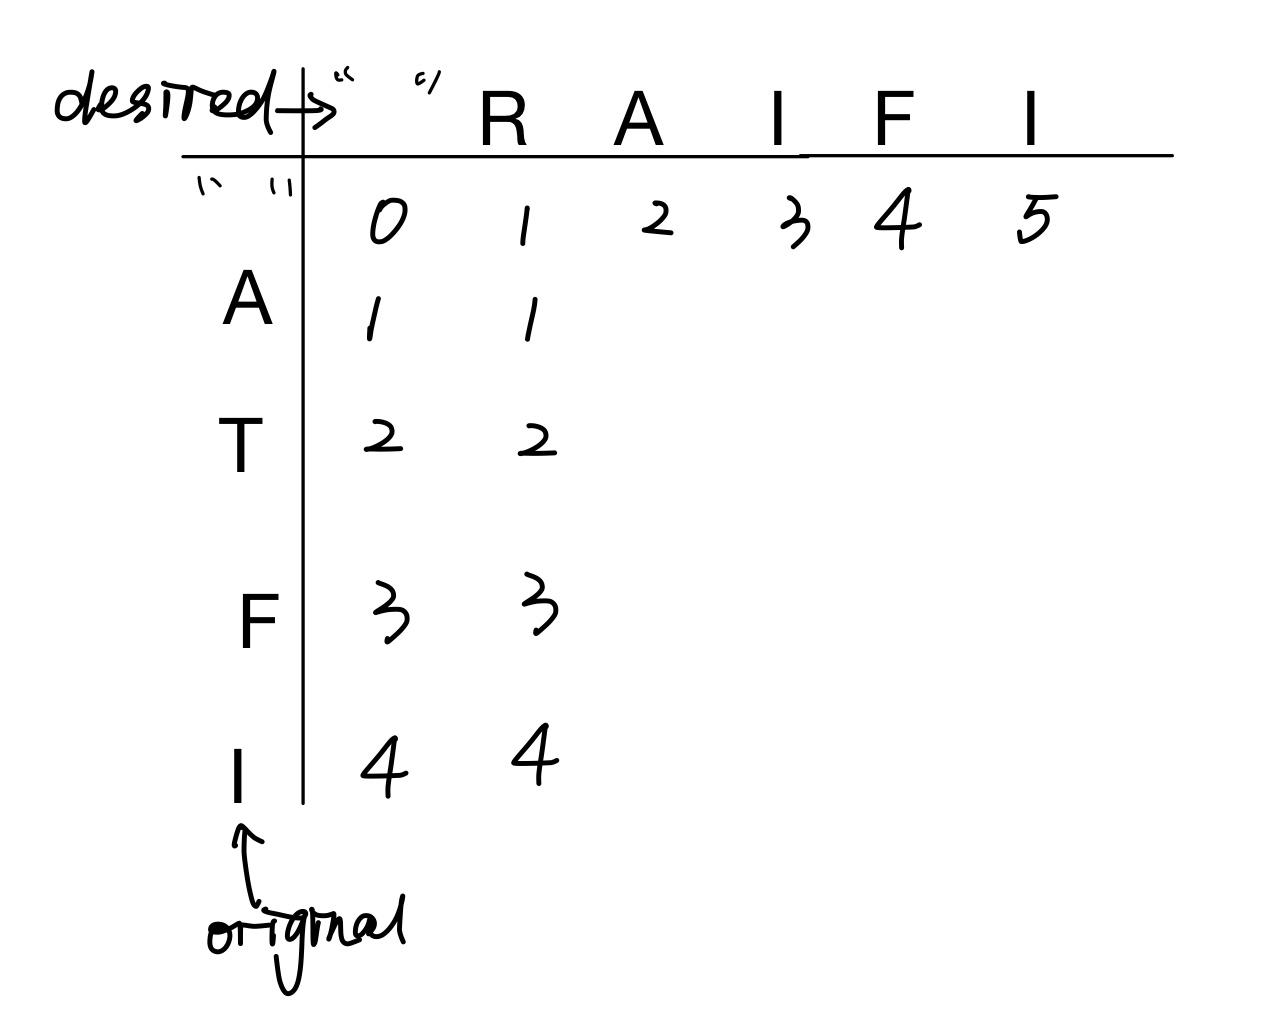 desired → " "  R A I F I
" " 0 1 2 3 4 5
A 1 1
T 2 2
F 3 3
I 4 4
original